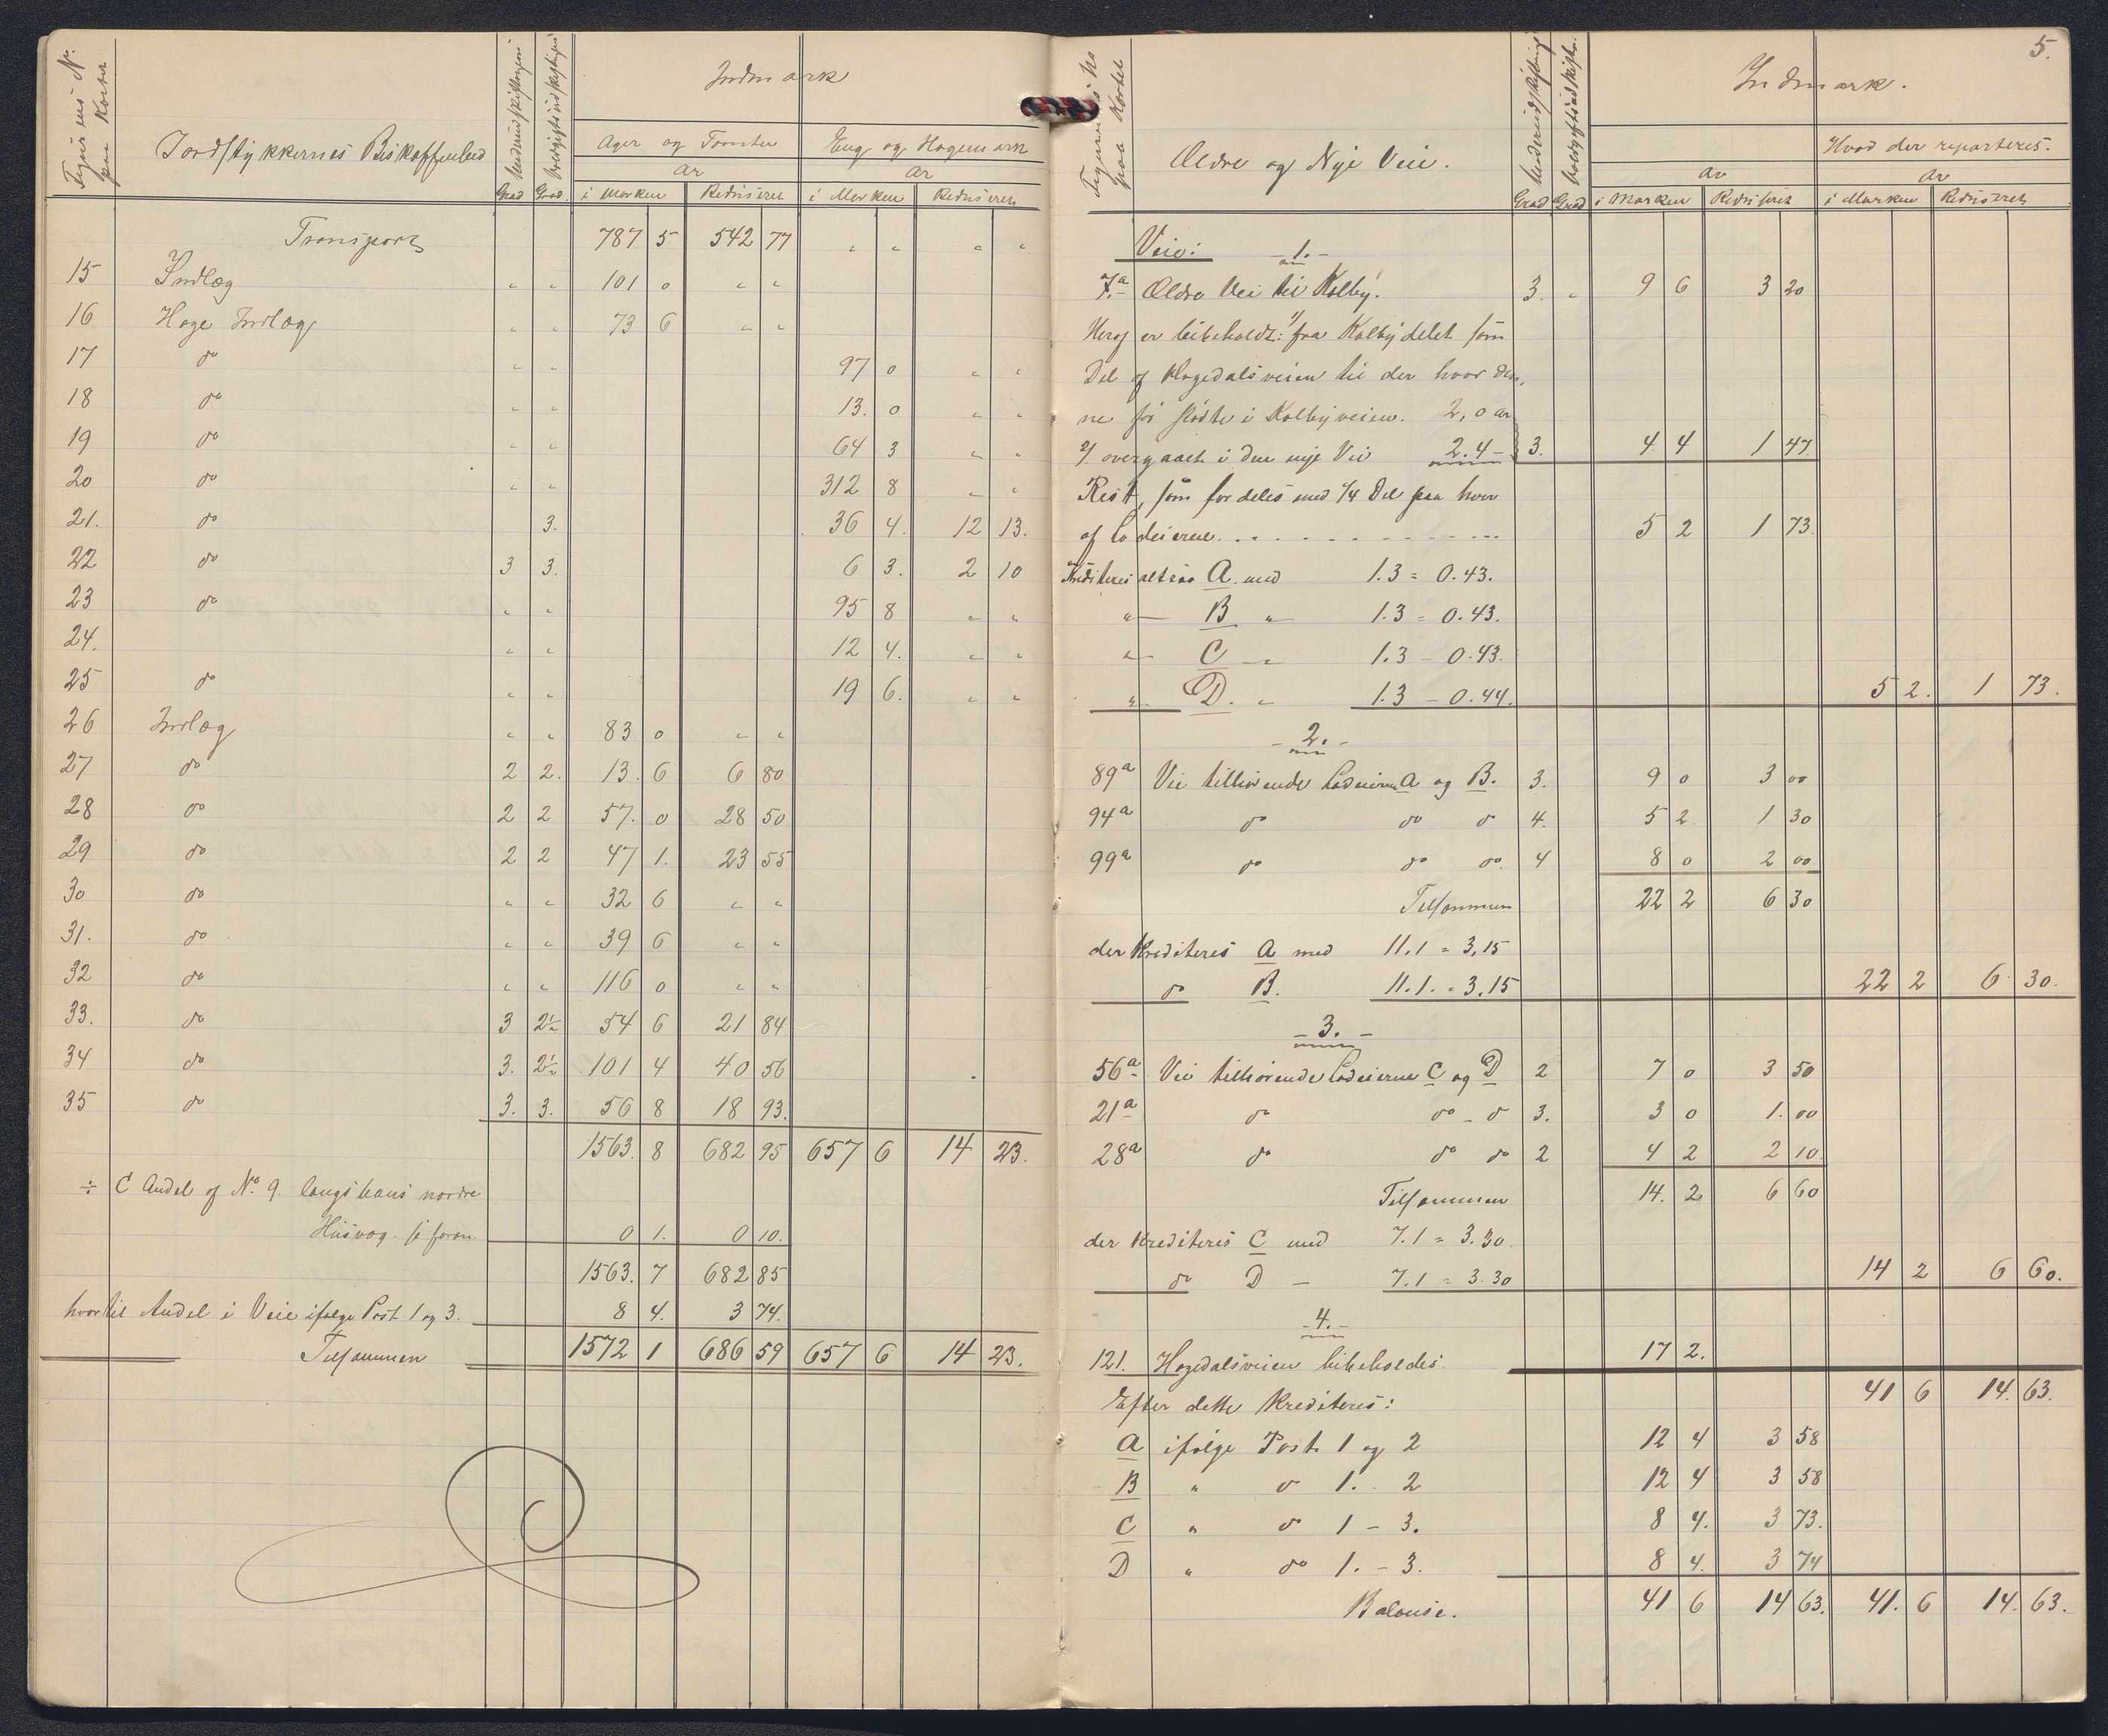 Figurens No. paa Kartet
Jordstykkernes Beskaffenhed
Indmark
Ager og Tomter
Eng og Hagemark
ar
ar
Grad
Grad.
i Marken
Reduseret
i Marken
Reduseret
Transport 787 5 542 77 " " " "
15 Indlæg " " 101 0 " "
16 Hage Indlæg " " 73 6 " "
17 do " " 97 0 " "
18 do " " 13. 0 " "
19 do " " 64 3 " "
20 do " " 312 8 " "
21. do 3. 36 4. 12 13.
22 do 3 3. 6 3. 2 10
23 do " " 95 8 " "
24. " " 12 4. " "
25 do " " 19 6. " "
26 Indlæg " " 83 0 " "
27 do 2 2. 13. 6 6 80
28 do 2 2 57. 0 28 50
29 do 2 2 47 1. 23 55
30 do " " 32 6 " "
31. do " " 39 6 " "
32 do " " 116 0 " "
33. do 3 2½ 54 6 21 84
34 do 3. 2½ 101 4 40 56
35 do 3. 3. 56 8 18 93.
1563. 8 682 95 657 6 14 23.
÷ C Andel af No. 9. langs hans nordre
Husvæg. se foran. 0 1. 0 10.
1563. 7 682 85
hvortil Andel i Veie ifølge Post 1 og 3. 8 4. 3 74.
Tilsammen 1572 1 686 59 657 6 14 23.
5.
Figurens No paa Kartet
Ældre og Nye Veie.
Indmark.
Hvad der reparteres.
ar
ar
Grad
Grad
i Marken
Reduseret
i Marken
Reduseret
Veie: - 1. -
7.a Ældre Vei til Kolby. 3. " 9 6 3 20
Heraf er bibeholdt: 1/ fra Kolbydelet som
Del af Hagedalsveien til der hvor den-
ne før stødte i Kolbyveien. 2,0 ar
2/ overgaaet i den nye Vei 2.4 - 3. 4 4 1 47.
Rest, som fordeles med 1/4 Del paa hver
af Lodeierne. . . . . 5 2 1 73.
Krediteres altsaa A. med 1.3 = 0.43.
" — B " — 1.3 = 0.43.
" — C — " 1.3 — 0.43.
" D. " 1.3 — 0.44. 5 2. 1 73.
- 2. -
89a Vei tilhørende Lodeierne A og B. 3. 9 0 3 00
94a do do do 4. 5 2 1 30
99a do do do. 4 8 0 2 00
Tilsammen 22 2 6 30
der Krediteres A med 11.1 = 3,15
do B. 11.1. = 3.15 22 2 6 30.
- 3. -
56a Vei tilhørende Lodeierne C og D 2 7 0 3 50
21a do do - do 3. 3 0 1. 00
28a do do do 2 4 2 2 10.
Tilsammen 14. 2 6 60
der Krediteres C med 7.1 = 3.30.
do D — 7.1 = 3.30 14 2 6 60.
- 4. -
121. Hagedalsveien bibeholdes. 17 2.
41 6 14. 63.
Efter dette Krediteres:
A ifølge Post 1 og 2 12 4 3 58
B " do 1. . 2 12 4 3 58
C " do 1 - 3. 8 4. 3 73.
D " do 1. - 3. 8 4. 3 74
Balanse. 41 6 14 63. 41. 6 14. 63.